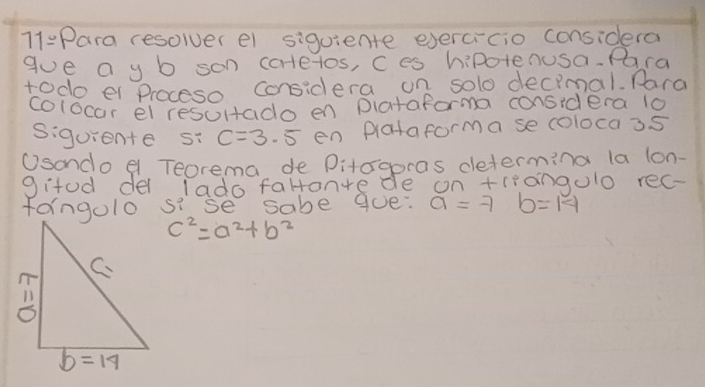 11=Para resolver el siguiente esercicio considera
que a y b son catetos, c es hipotenusa. Para
todo el Proceso considera un solo decimal. Para
colocar el resultado en Plataforma considera lo
siguiente si c=3.5 en plataforma se coloca 3.5
Usando el Teorema de Pitágoras determina la lon-
gitud del lado faltante de un triángulo rec-
tángulo si se sabe que: a=7 b=
c²=a²+b²
a=7
c=
b=